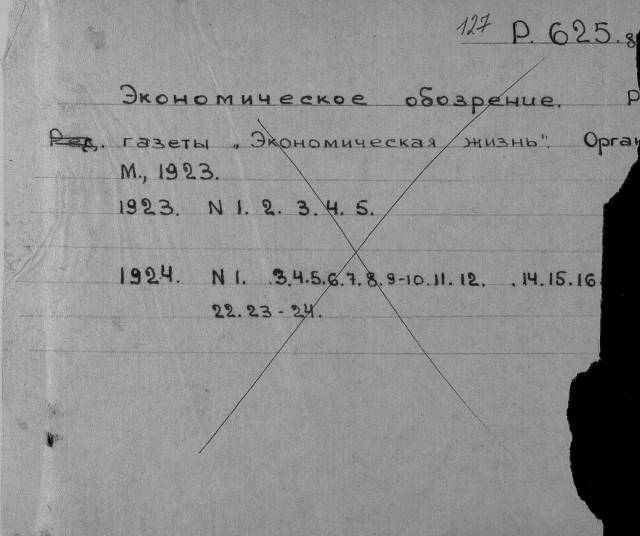 127 Р. 625.
Экономическое обозрение. Р
Ред. газеты „Экономическая жизнь". Орган
М., 1923.
1923. N 1. 2. 3. 4. 5.
1924. N 1. .3.4.5.6.7.8.9-10.11.12. .14.15.16
22. 23 - 24.